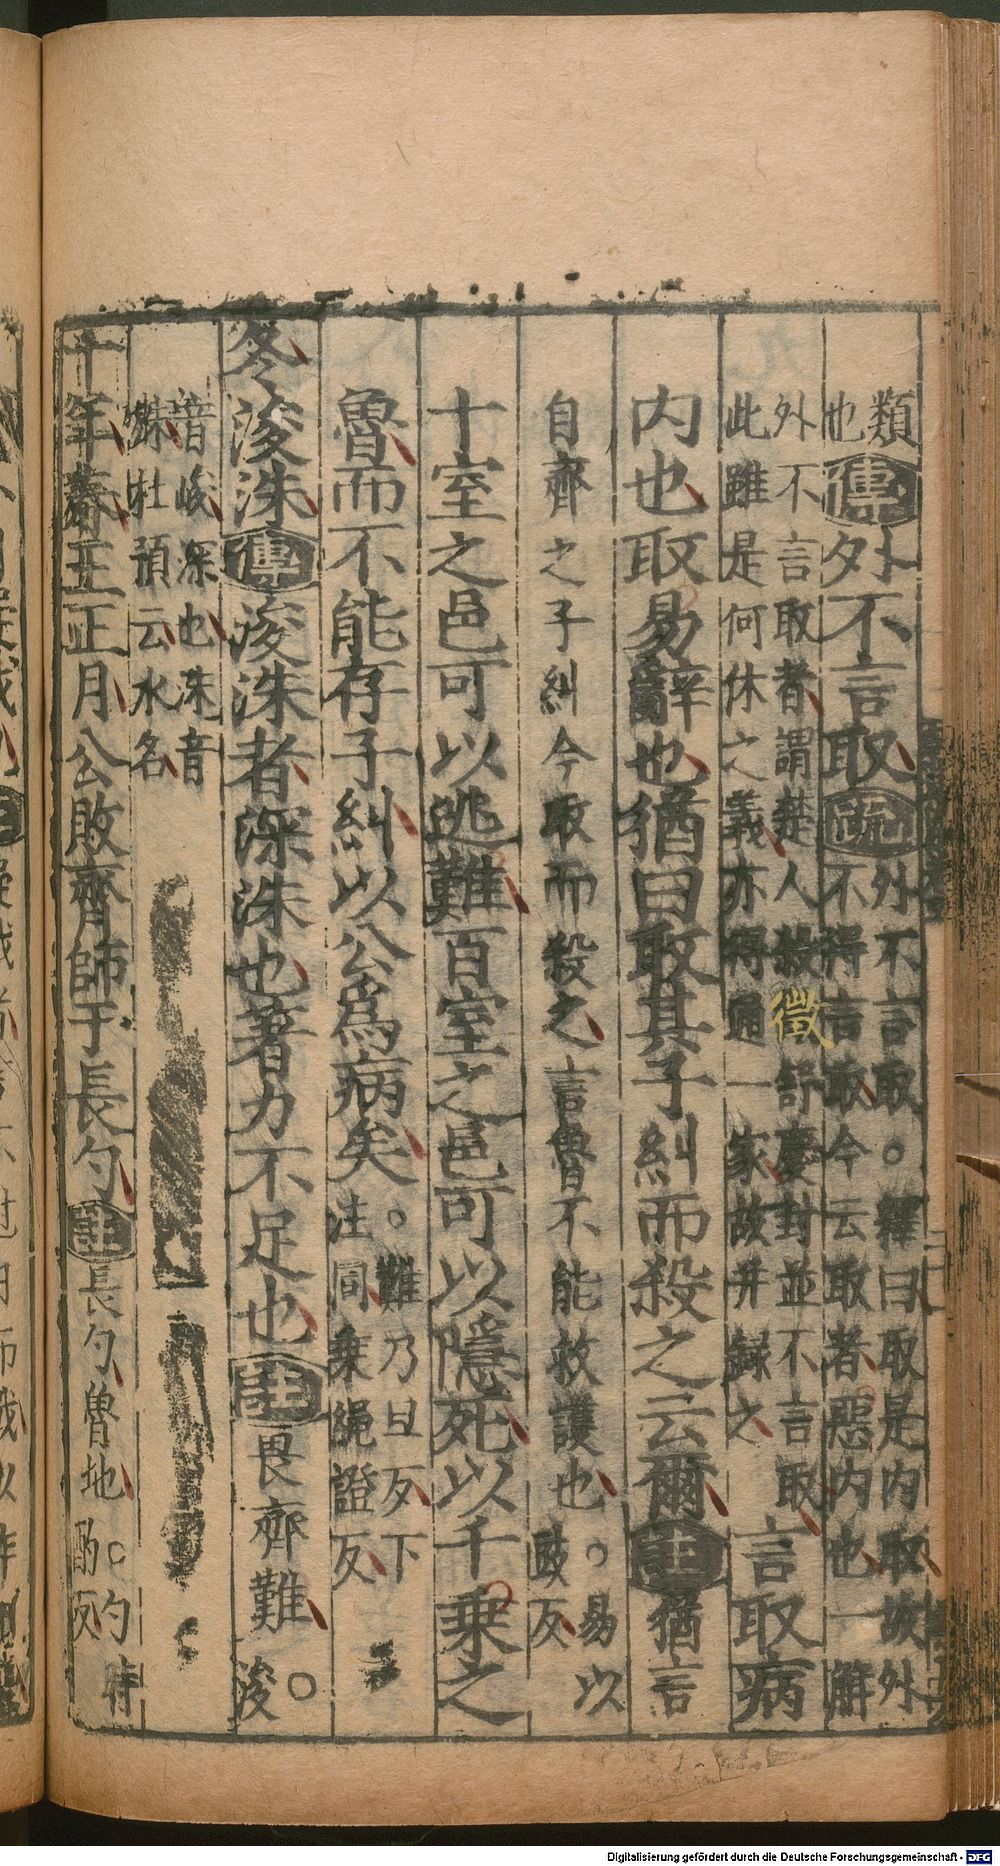 類
也傳外不言取疏外不言取○釋曰取是内取故外
不得言取今云取者惡内也一解
外不言取者謂楚人殺徵舒慶封並不言取
此雖是何休之義亦得通一家故并録之
言取病
内也取易辭也猶曰取其子糾而殺之云爾註猶言
自齊之子糾今取而殺之言魯不能救護也○易以
豉反
十室之邑可以逃難百室之邑可以隱死以千乗之
魯而不能存子糾以公爲病矣○難乃旦反下
注同乗繩證反
冬浚洙傳浚洙者深洙也著力不足也註畏齊難○
浚
音峻深也洙音
殊杜預云水名
十年春王正月公敗齊師于長勺註長勺魯地○勺時
酌反
Digitalisierung gefördert durch die Deutsche Forschungsgemeinschaft - DFG